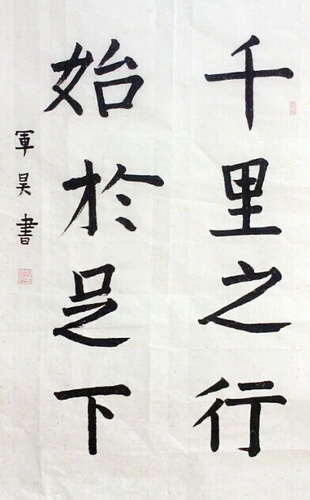 千里之行
始於足下
軍昊書